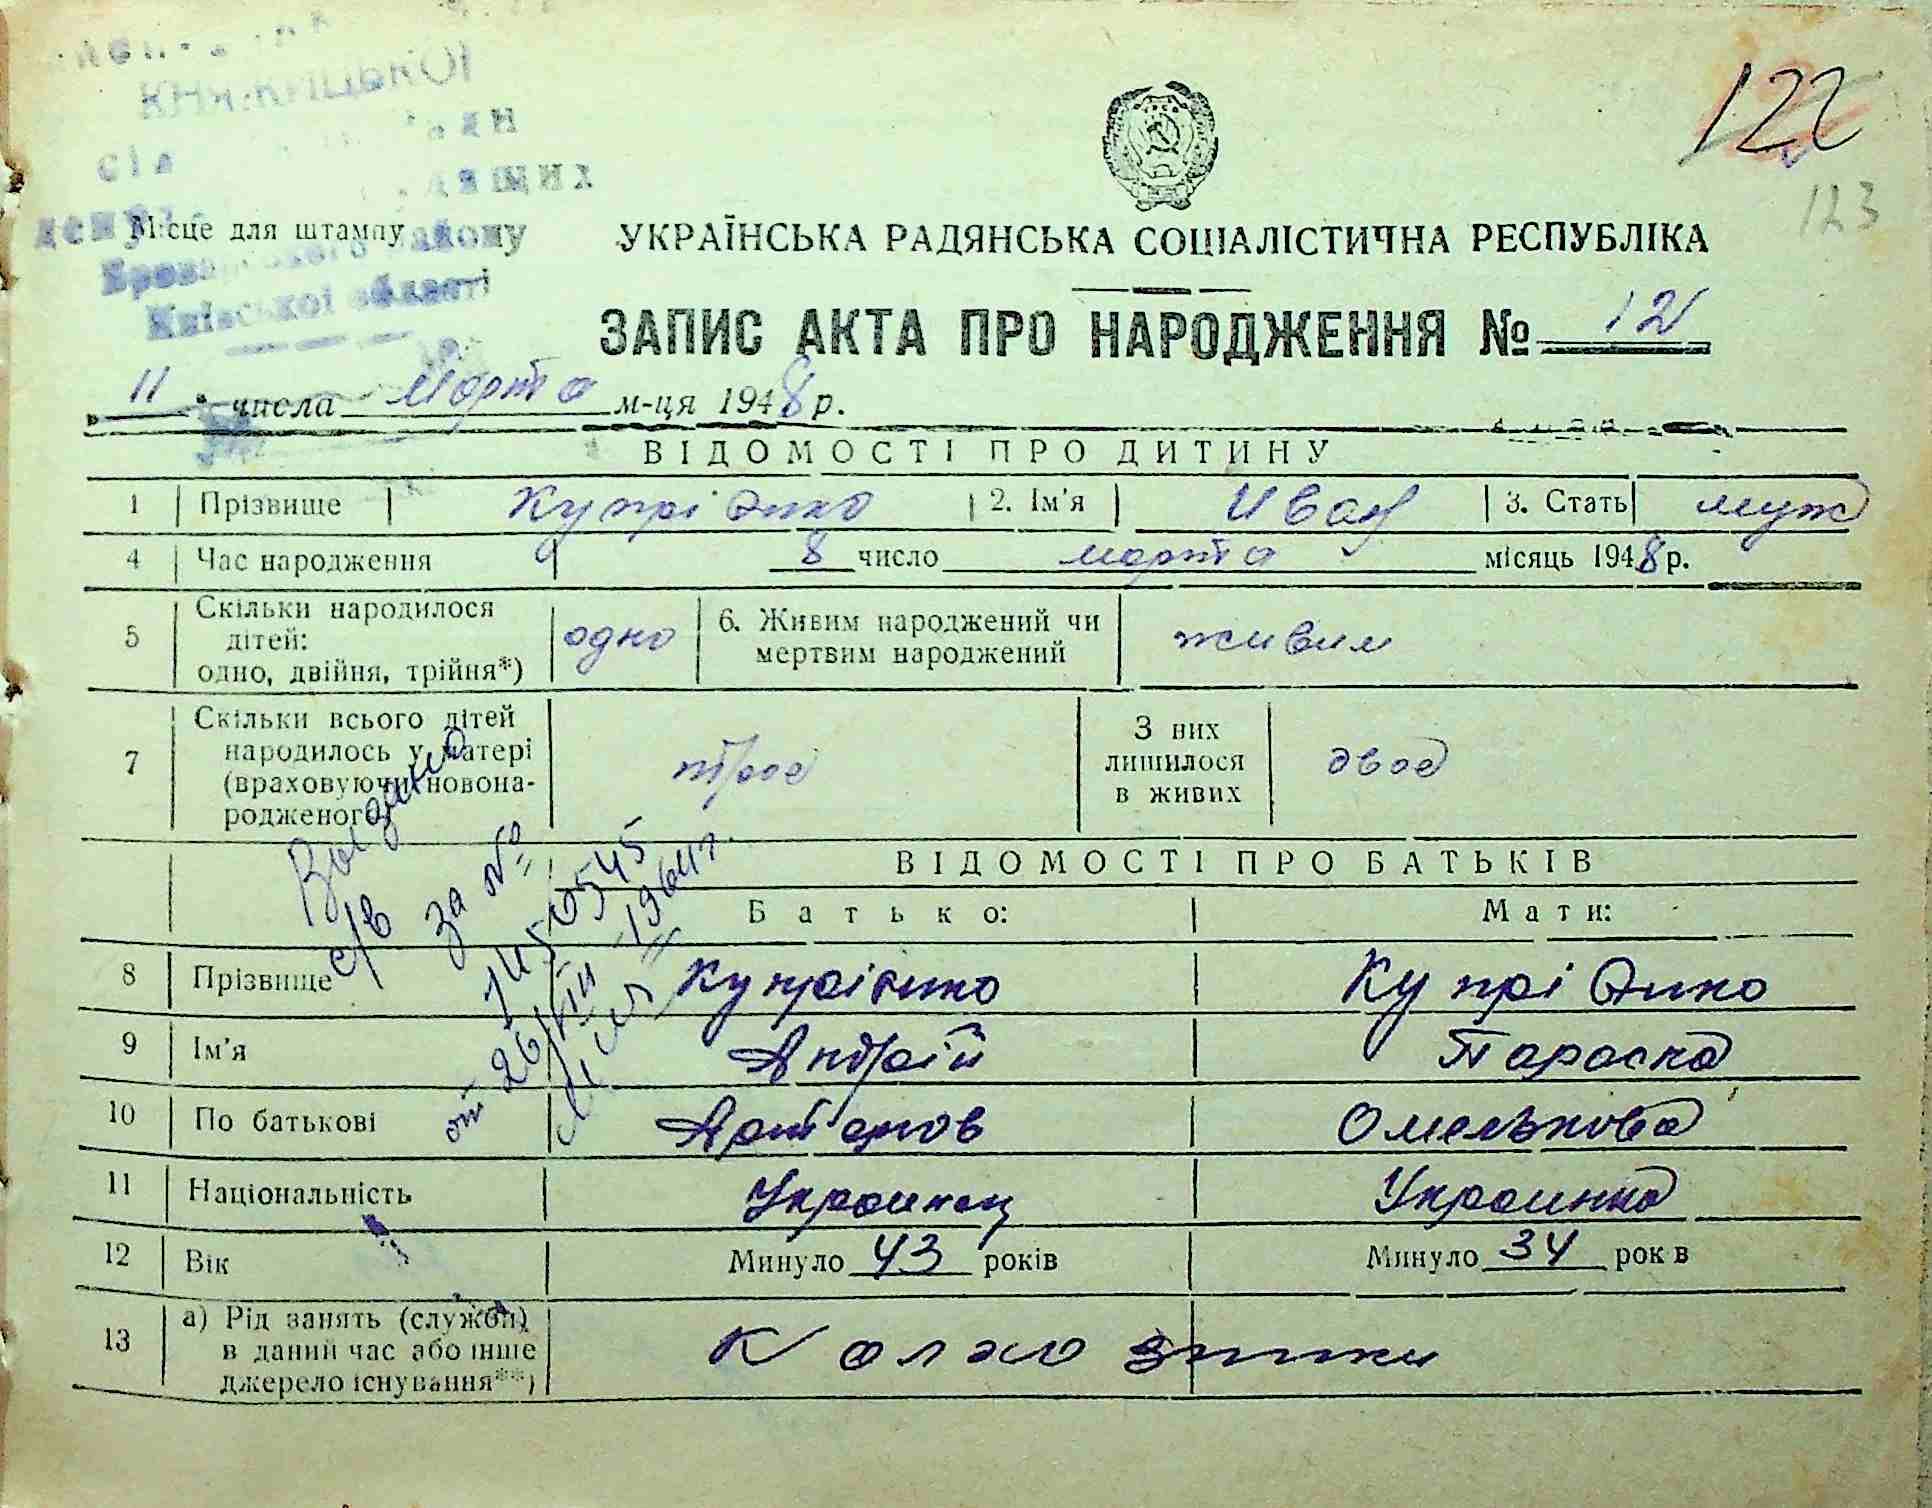 КНЯЖИЦЬКОЇ
Броварського району
Київської області
122
123
Місце для штампу
УКРАЇНСЬКА РАДЯНСЬКА СОЦІАЛІСТИЧНА РЕСПУБЛІКА
ЗАПИС АКТА ПРО НАРОДЖЕННЯ № 12
„11" числа марта м-ця 1948 р.
ВІДОМОСТІ ПРО ДИТИНУ
1 Прізвище Купріянко 2. Ім'я Иван 3. Стать муж
4 Час народження 8 число марта місяць 1948 р.
5 Скільки народилося дітей: одно, двійня, трійня*) одно 6. Живим народжений чи мертвим народжений живим
7 Скільки всього дітей народилось у матері (враховуючи новонародженого) трое З них лишилося в живих двоє
ВІДОМОСТІ ПРО БАТЬКІВ
Батько: Мати:
8 Прізвище Купріянко Купріянко
9 Ім'я Андрій Параска
10 По батькові Омелькова
11 Національність Украинец Украинка
12 Вік Минуло 43 років Минуло 34 рок в
13 а) Рід занять (служби) в даний час або інше джерело існування**) Колхозники
Выдано
с/в за №
от 26/VIII 1964 г.